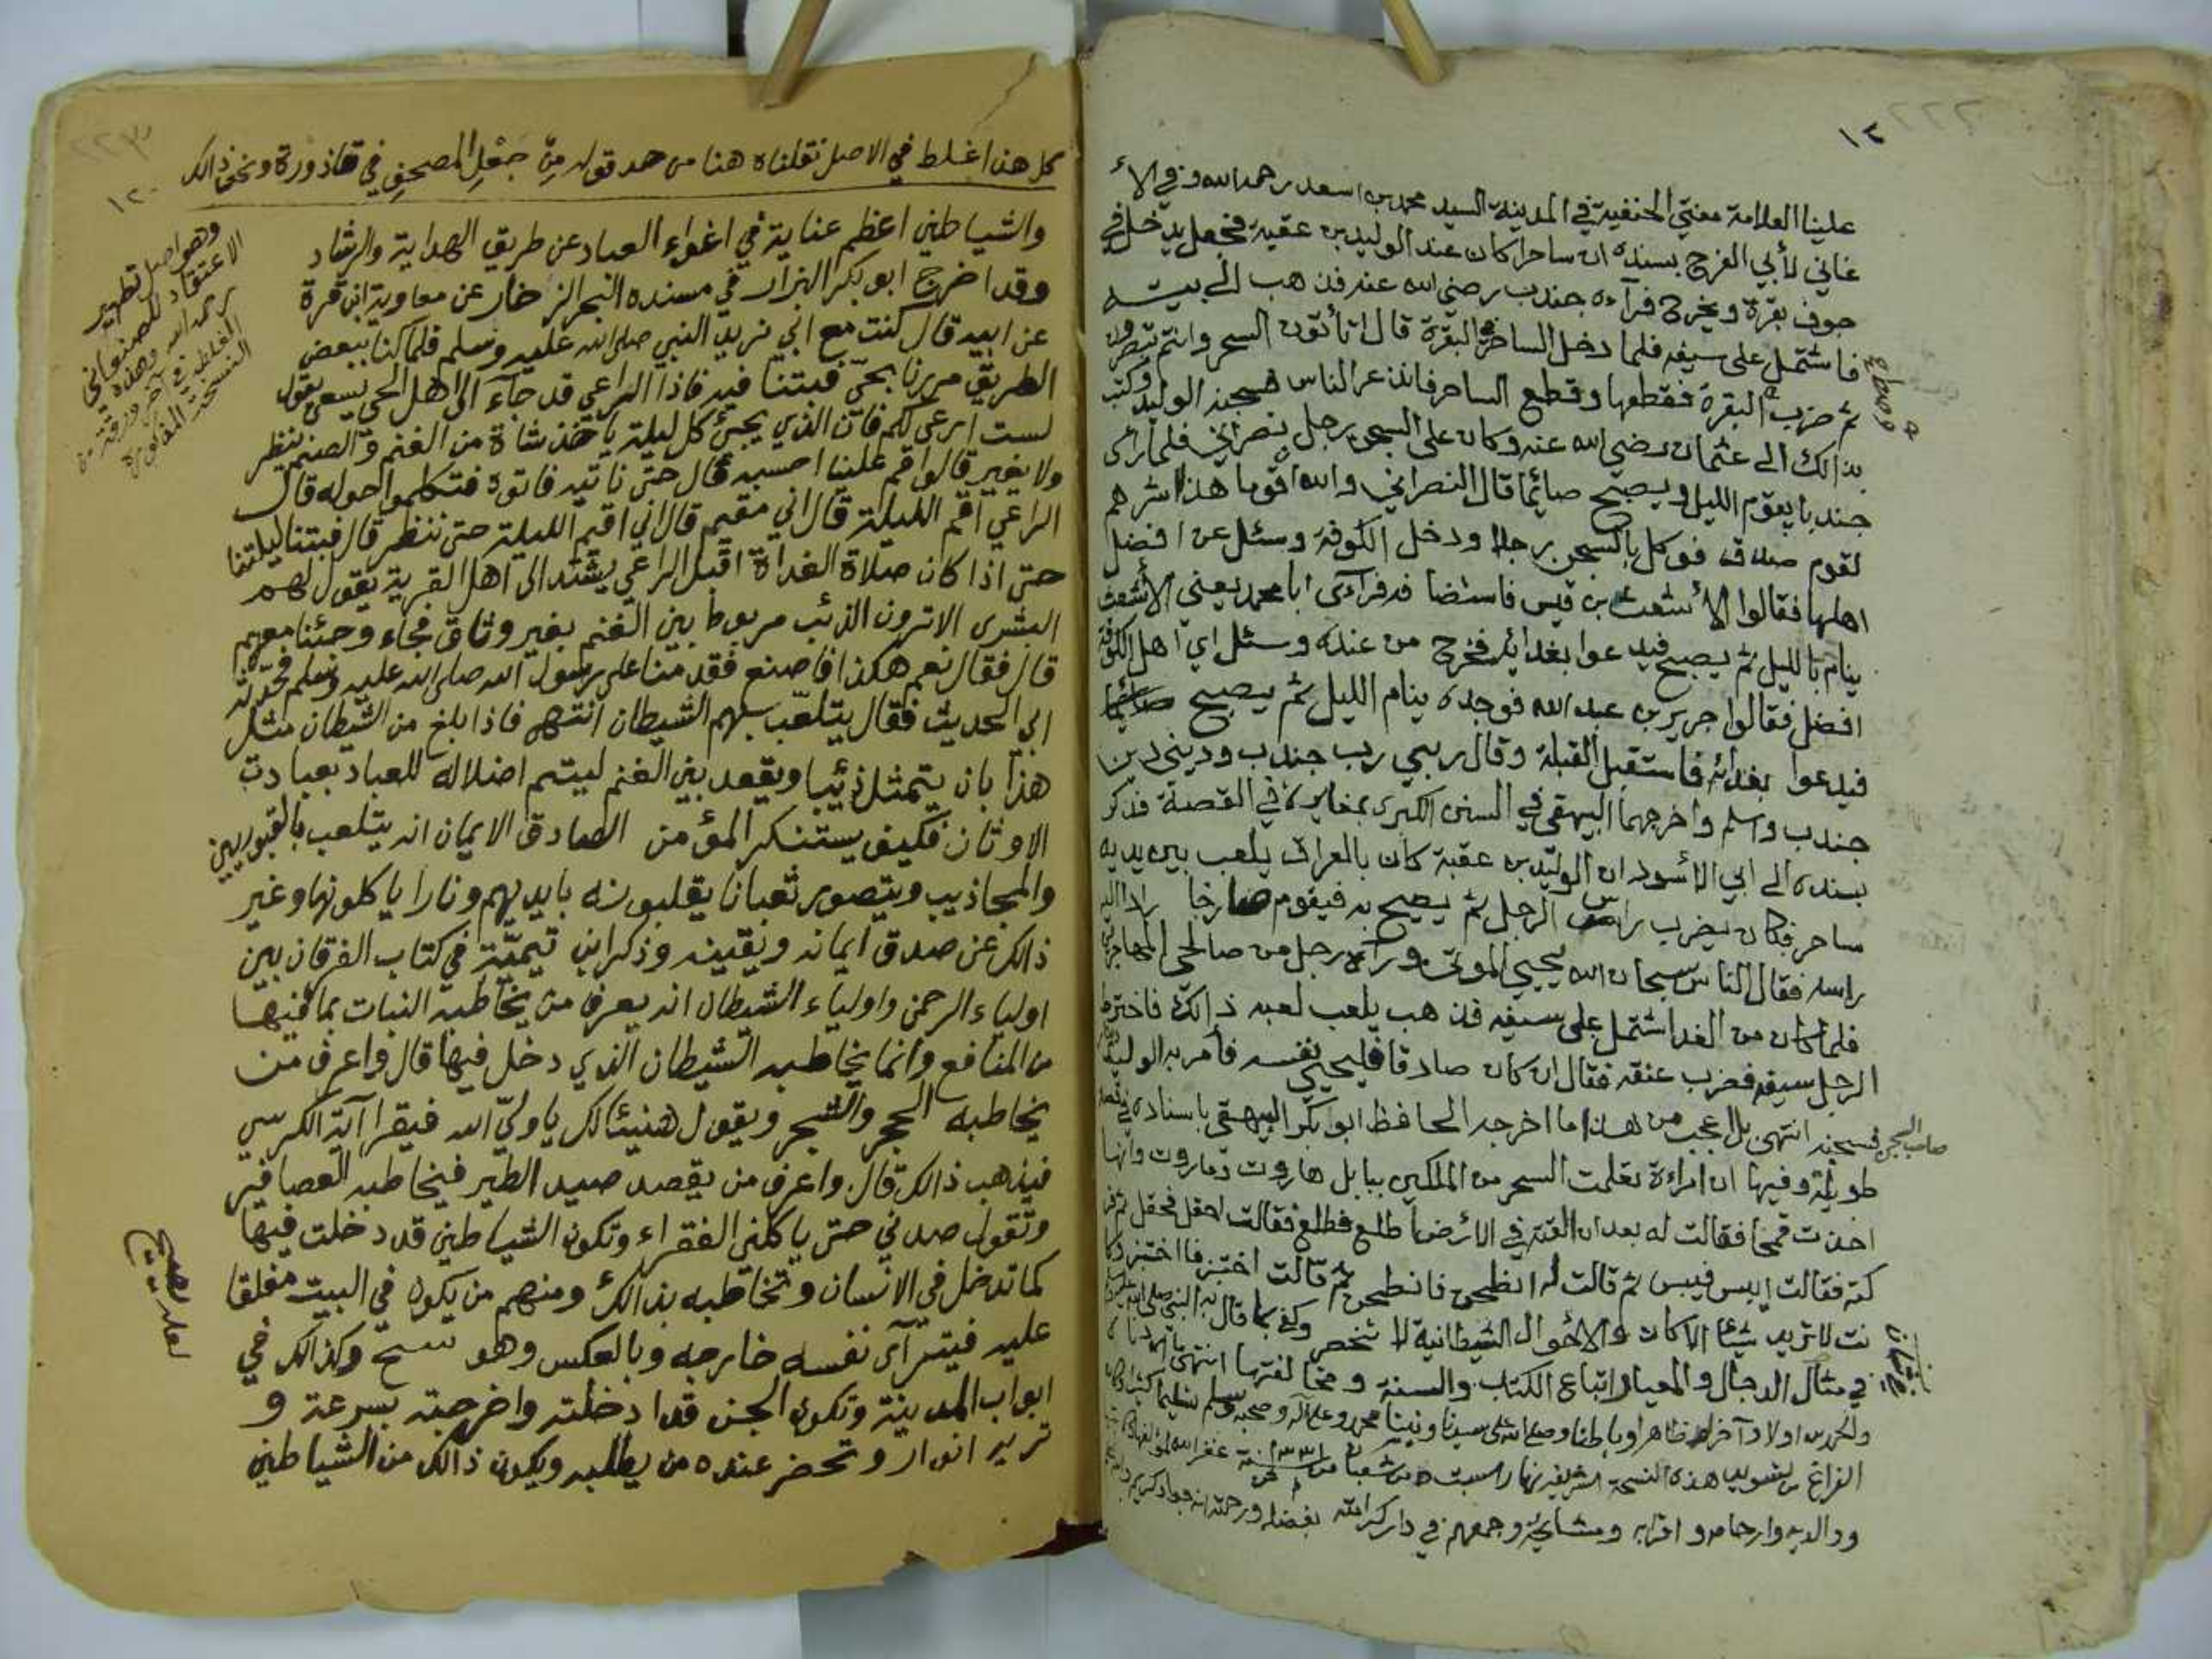 ١٢
علينا العلامة مفتي الحنفية في المدينة السيد محمد بن اسعد رحمه الله وفي الأ
غاني لأبي الفرج بسنده ان ساحرا كان عند الوليد بن عقبة فجعل يدخل في
جوف بقرة ويخرج فرآءه جندب رضي الله عنه فذهب الى بيته
فاشتمل على سيفه فلما دخل الساحر في البقرة قال اتأتون السحر وانتم تبصرون
ثم ضرب البقرة فقطعها وقطع الساحر فانذعر الناس فسجنه الوليد وكتب
بذالك الى عثمان رضي الله عنه وكان على السجن رجل نصراني فلما رأى
جندبا يقوم الليل ويصبح صائما قال النصراني والله ان قوما هذا شرهم
لقوم صدق فوكل بالسجن رجلا ودخل الكوفة وسئل عن افضل
اهلها فقالوا الأشعث بن قيس فاستضافه فرآءى ابا محمد يعني الأشعث
ينام بالليل ثم يصبح فيدعوا بغدائه فخرج من عنده وسئل اي اهل الكوفة
افضل فقالوا جرير بن عبد الله فوجده ينام الليل ثم يصبح
فيدعوا بغدائه فاستقبل القبلة وقال ربي رب جندب وديني دين
جندب واسلم واخرجها البيهقي في السنن الكبرى بمغايرة في القصة فذكر
بسنده الى ابي الأسود ان الوليد بن عقبة كان بالعراق يلعب بين يديه
ساحر فكان يضرب راس الرجل ثم يصيح به فيقوم صارخا
راسه فقال الناس سبحان الله يحيي الموتى ورآه رجل من صالحي المهاجرين
فلما كان من الغد اشتمل على سيفه فذهب يلعب لعبه ذالك فاخترط
الرجل سيفه فضرب عنقه فقال ان كان صادقا فليحيي نفسه فأمر به الوليد
صاحب السجن فسجنه انتهى بل اعجب من هذا ما اخرجه الحافظ ابو بكر البيهقي باسناده في قصة
طويلة وفيها ان امراءة تعلمت السحر من الملكين ببابل هاروت وماروت وانها
اخذت قمحا فقالت له بعد ان القته في الارض اطلع فطلع فقالت احقل فحقل ثم
كته فقالت ايبس فيبس ثم قالت له انطحن فانطحن ثم قالت اختبز فاختبز وكا
نت لا تريد شيئا الا كان والاحوال الشيطانية لا تنحصر وكفى بما قال به النبي
في مثال الدجال والمعيار اتباع الكتاب والسنة ومخالفتها انتهى
والحمد لله اولا وآخرا وظاهرا وباطنا وصلى الله على سيدنا ونبينا محمد وعلى آله وصحبه وسلم تسليما كثيرا
الفراغ من تسويد هذه النسخة الشريفة نهار السبت من شعبان
ووالديه وارحامه واقرابه ومشايخه وجمعهم في دار كرامته بفضله ورحمته انه جواد كريم
١٢٠
كل هذا غلط في الاصل نقلناه هنا من حد قوله من جعل المصحف في قاذورة ونحو ذالك
وهو اصل تطهير
الاعتقاد للصنعاني
رحمه الله وهذه
الغلط في آخر ورقة من
النسخة
والشياطين اعظم عناية في اغواء العباد عن طريق الهداية والرشاد
وقد اخرج ابو بكر البزار في مسنده البحر الزخار عن معاوية ابن قرة
عن ابيه قال كنت مع ابي نريد النبي صلى الله عليه وسلم فلما كنا ببعض
الطريق مررنا بحي فبتنا فيه فاذا الراعي قد جاء الى اهل الحي يسعى يقول
لست ارعى لكم فان الذئب يجيئ كل ليلة ياخذ شاة من الغنم والصنم ينظر
ولا يغير قالوا اقم علينا احسبه قال حتى ناتيه فاتوه فتكلموا حوله قال
الراعي اقم الليلة قال اني مقيم قال اني اقيم الليلة حتى ننظر قال فبتنا ليلتنا
حتى اذا كان صلاة الغداة اقبل الراعي يشتد الى اهل القرية يقول لهم
البشرى الا ترون الذئب مربوط بين الغنم بغير وثاق فجاء وجئنا معهم
قال فقال نعم هكذا فاصنع فقدمنا على رسول الله صلى الله عليه وسلم فحدثه
ابي الحديث فقال يتلعب بهم الشيطان انتهى فاذا بلغ من الشيطان مثل
هذا بان يتمثل ذئبا ويقعد بين الغنم ليتم اضلاله للعباد بعبادت
الاوثان فكيف يستنكر المؤمن الصادق الايمان انه يتلعب بالقبوريين
والمجاذيب ويتصور ثعبانا يقلبونه بايديهم ونارا ياكلونها وغير
ذالك عن صدق ايمانه ويقينه وذكر ابن تيمية في كتاب الفرقان بين
اولياء الرحمن واولياء الشيطان انه يعرف من يخاطبه النبات بما فيها
من المنافع وانما يخاطبه الشيطان الذي دخل فيها قال واعرف من
يخاطبه الحجر والشجر ويقول هنيئا لك يا ولي الله فيقرا آية الكرسي
فيذهب ذالك قال واعرف من يقصد صيد الطير فيخاطبه العصافير
وتقول صدني حتى ياكلني الفقراء وتكون الشياطين قد دخلت فيها
كما تدخل في الانسان وتخاطبه بذالك ومنهم من يكون في البيت مغلقا
عليه فيترآى نفسه خارجه وبالعكس وهو وكذالك في
لعله
ابواب المدينة وتكون الجن قد ادخلته واخرجته بسرعة و
تريه انوار وتحضر عنده من يطلبه ويكون ذالك من الشياطين